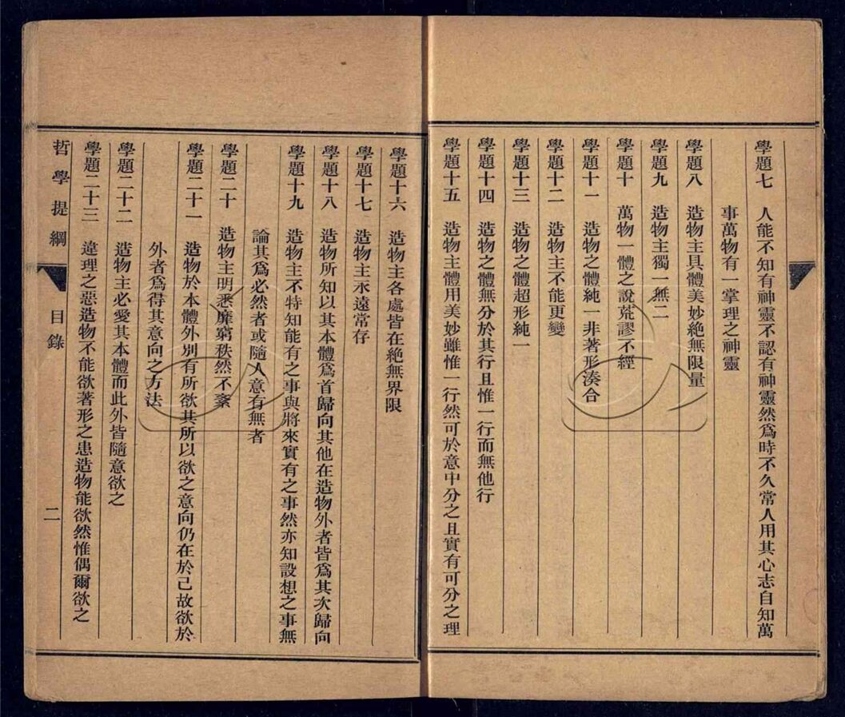 學題七　人能不知有神靈不認有神靈然爲時不久常人用其心志自知萬
事萬物有一掌理之神靈
學題八　造物主具體美妙絶無限量
學題九　造物主獨一無二
學題十　萬物一體之說荒謬不經
學題十一　造物之體純一非著形湊合
學題十二　造物主不能更變
學題十三　造物之體超形純一
學題十四　造物之體無分於其行且惟一行而無他行
學題十五　造物主體用美妙雖惟一行然可於意中分之且實有可分之理
學題十六　造物主各處皆在絶無界限
學題十七　造物主永遠常存
學題十八　造物所知以其本體爲首歸向其他在造物外者皆爲其次歸向
學題十九　造物主不特知能有之事與將來實有之事然亦知設想之事無
論其爲必然者或隨人意有無者
學題二十　造物主明悉靡窮秩然不紊
學題二十一　造物於本體外別有所欲其所以欲之意向仍在於己故欲於
外者爲得其意向之方法
學題二十二　造物主必愛其本體而此外皆隨意欲之
學題二十三　違理之惡造物不能欲著形之患造物能欲然惟偶爾欲之
哲學提綱　目錄　二